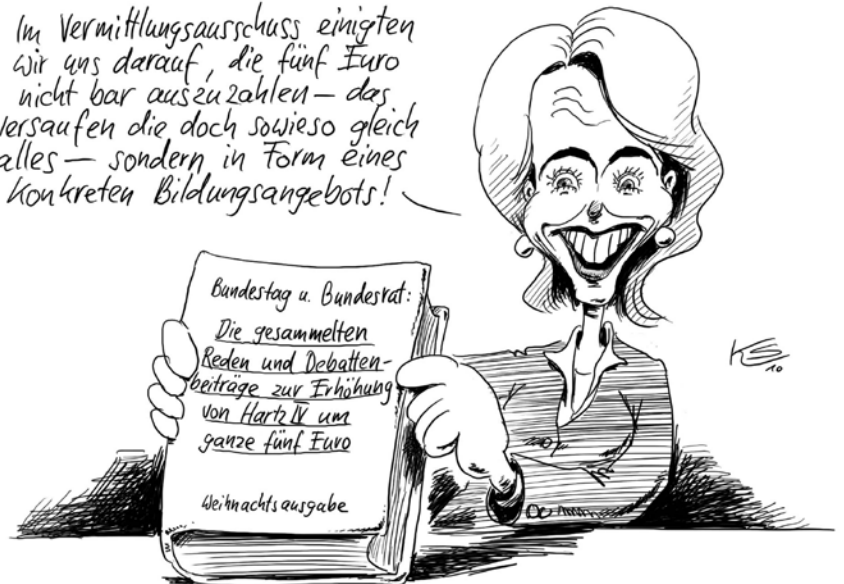 Im Vermittlungsausschuss einigten
wir uns darauf, die fünf Euro
nicht bar auszuzahlen – das
versaufen die doch sowieso gleich
alles – sondern in Form eines
konkreten Bildungsangebots!
Bundestag u. Bundesrat:
Die gesammelten
Reden und Debatten-
beiträge zur Erhöhung
von Hartz IV um
ganze fünf Euro
Weihnachtsausgabe
KS
10